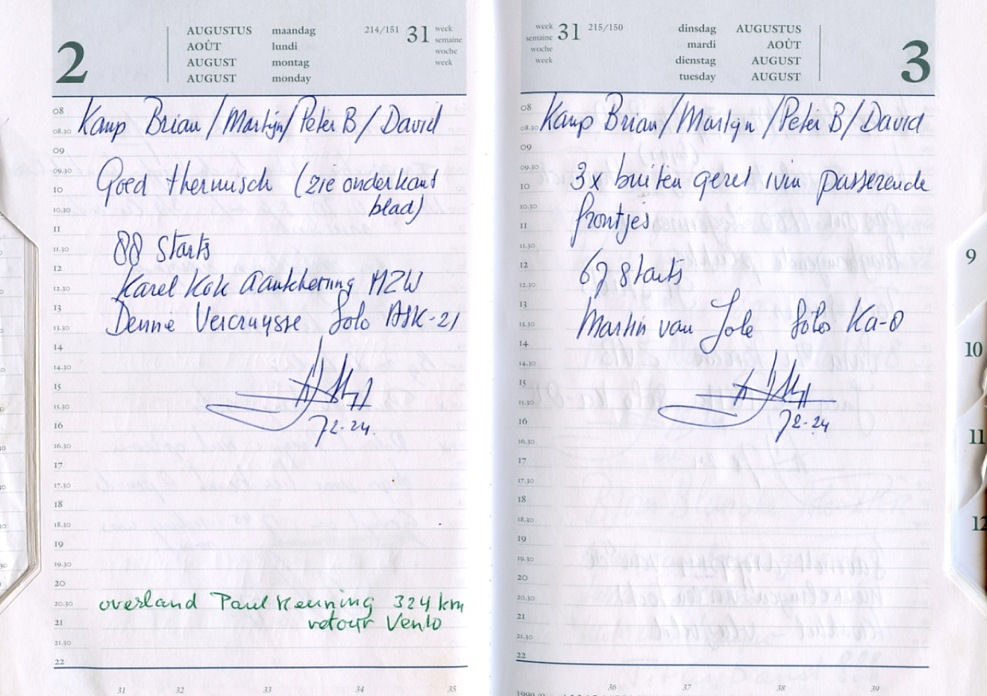 2
AUGUSTUS maandag
AOÛT lundi
AUGUST montag
AUGUST monday
214/151 31 week
semaine
woche
week
08 Kamp Brian / Martijn / Peter B / David
08.30
09
09.30 Goed thermisch (zie onderkant
10 blad)
10.30
11
11.30 88 Starts
12 Karel Kok Aantekening MZW
12.30
13 Dennie Vercruysse Solo ASK-21
13.30
14
14.30
15
15.30
16 72-24.
16.30
17
17.30
18
18.30
19
19.30
20
20.30 overland Paul Keuning 324 km
21 retour Venlo
21.30
22
31 32 33 34 35
week 31 215/150
semaine
woche
week
dinsdag AUGUSTUS
mardi AOÛT
dienstag AUGUST
tuesday AUGUST
3
08 Kamp Brian / Martijn / Peter B / David
08.30
09
09.30 3x buiten gezet ivm passerende
10
10.30 frontjes
11
11.30
12 67 Starts
12.30
13 Martin van Solo Ka-8
13.30
14
14.30
15
15.30
16 72-24
16.30
17
17.30
18
18.30
19
19.30
20
20.30
21
21.30
22
36 37 38 39
9
10
11
12